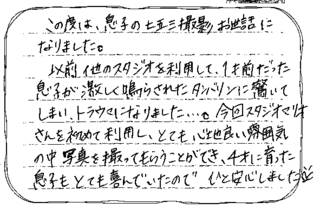 この度は、息子の七五三撮影でお世話に
なりました。
以前、他のスタジオを利用して、1才前だった
息子が激しく鳴らされたタンバリンに驚いて
しまい、トラウマになりました…。今回スタジオマリオ
さんを初めて利用し、とても心地良い雰囲気
の中写真を撮ってもらうことができ、4才に育った
息子もとても喜んでいたので安心しました